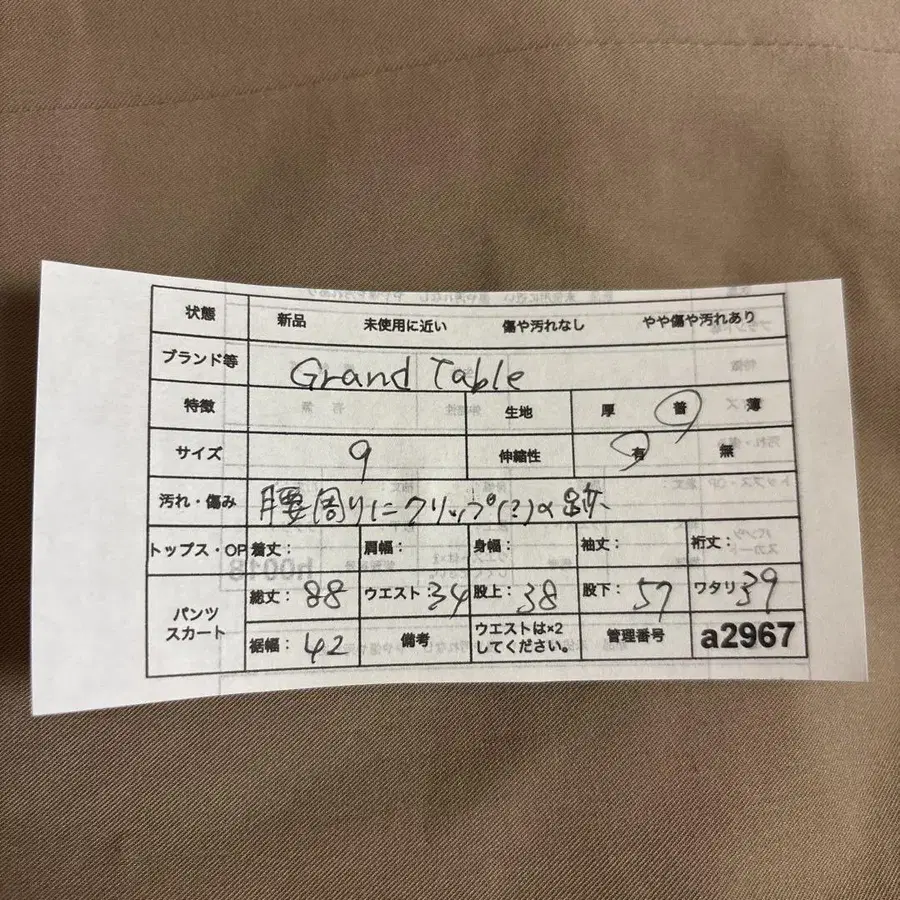 状態 新品 未使用に近い 傷や汚れなし やや傷や汚れあり
ブランド等 Grand Table
特徴 生地 厚 普 薄
サイズ 9 伸縮性 有 無
汚れ・傷み 腰周りにクリップ(?)の跡
トップス・OP 着丈: 肩幅: 身幅: 袖丈: 裄丈:
パンツ スカート 総丈: 88 ウエスト: 34 股上: 38 股下: 57 ワタリ: 39
裾幅: 42 備考 ウエストは×2 してください。 管理番号 a2967
h0018